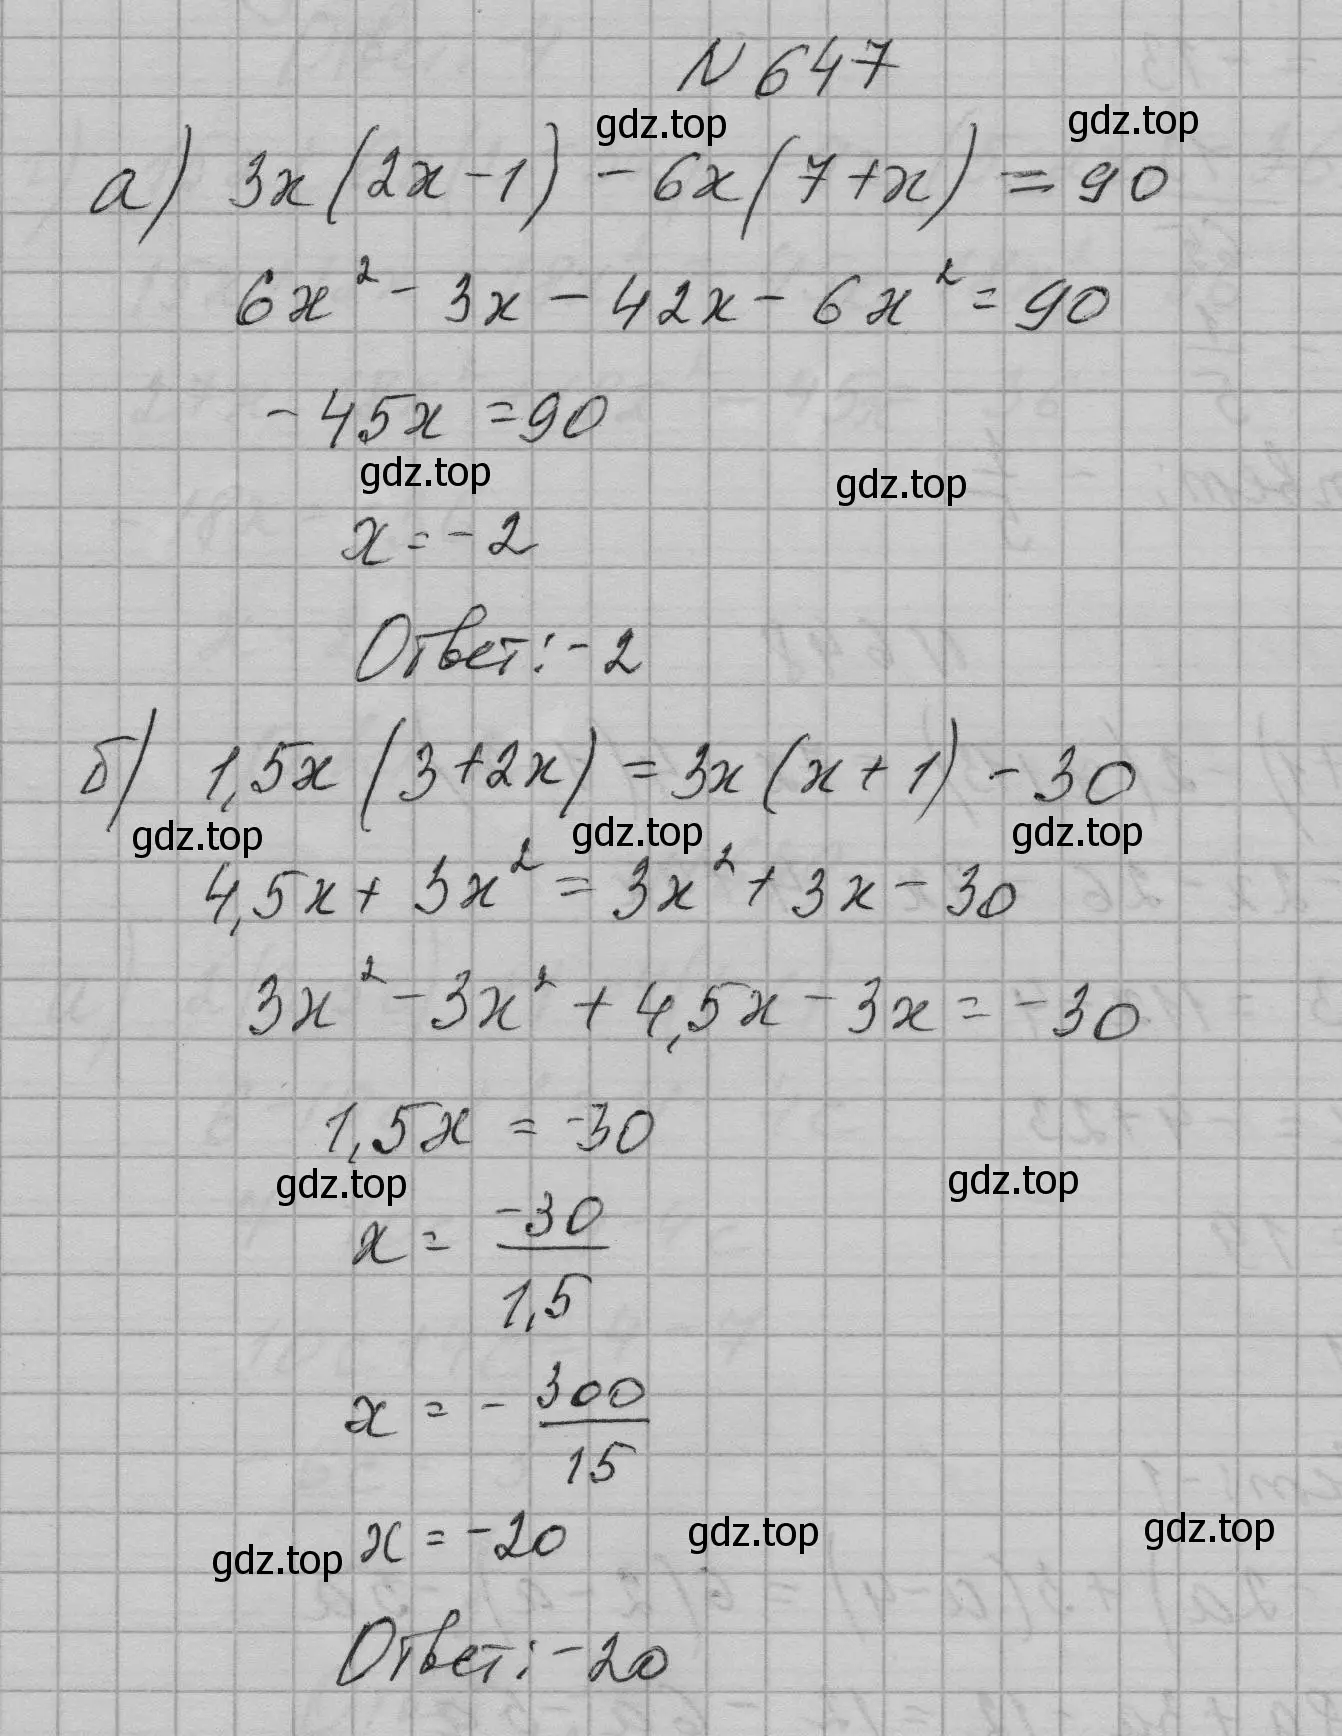 N 647
а) 3x(2x-1) - 6x(7+x) = 90
6x² - 3x - 42x - 6x² = 90
-45x = 90
x = -2
Ответ: -2
б) 1,5x(3+2x) = 3x(x+1) - 30
4,5x + 3x² = 3x² + 3x - 30
3x² - 3x² + 4,5x - 3x = -30
1,5x = -30
x = -30/1,5
x = -300/15
x = -20
Ответ: -20
gdz.top
gdz.top
gdz.top
gdz.top
gdz.top
gdz.top
gdz.top
gdz.top
gdz.top
gdz.top
gdz.top
gdz.top